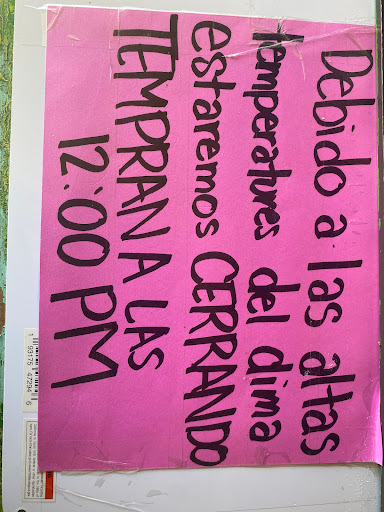 Debido a las altas
temperatures del dima
estaremos CERRANDO
TEMPRAN A LAS
12:00 PM
1 93175 47294 6